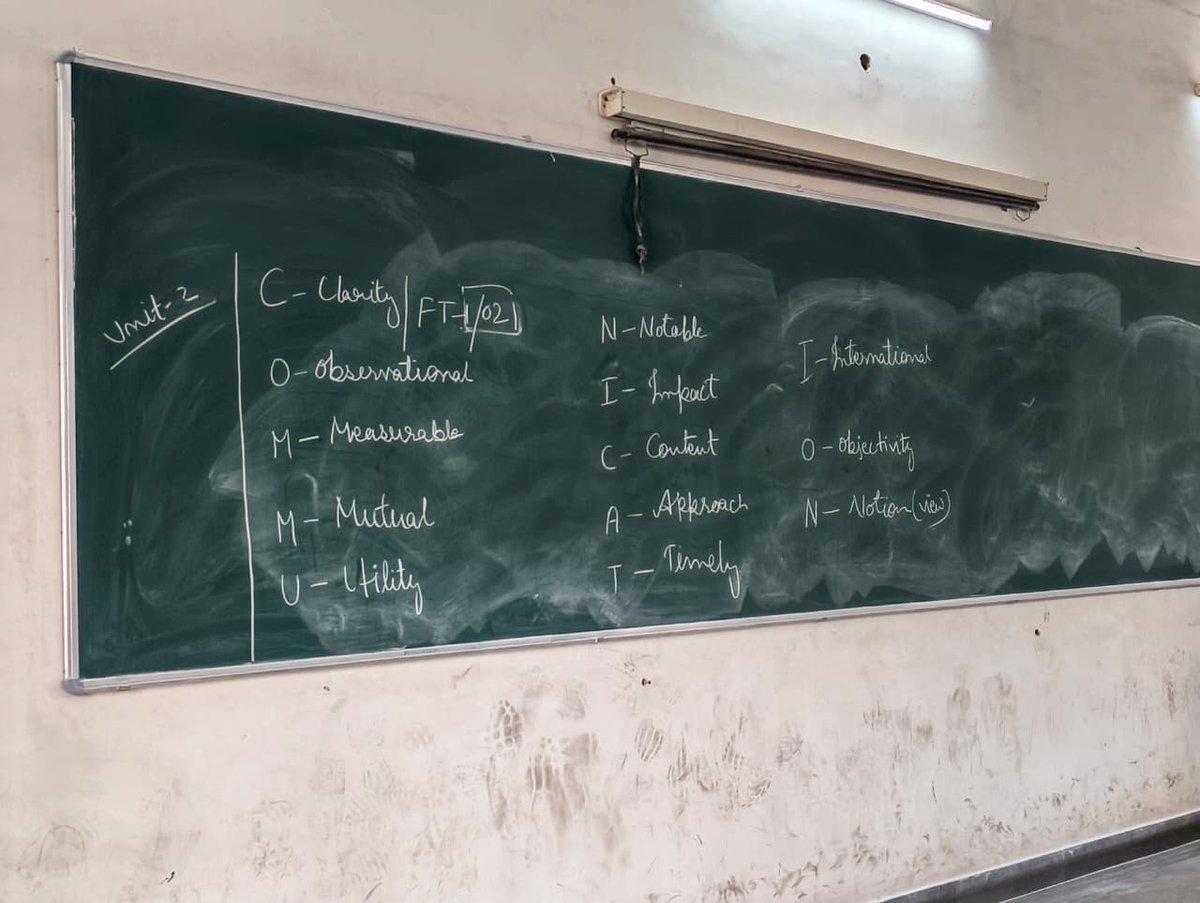 Unit-2
C - Clarity / FT-1/021
O - Observational
M - Measurable
M - Mutual
U - Utility
N - Notable
I - Impact
C - Content
A - Approach
T - Timely
I - International
O - Objectivity
N - Notion (view)